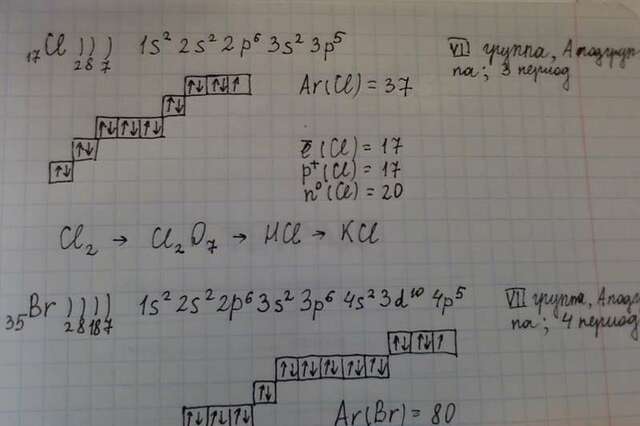 ₁₇Cl ) ) ) 1s² 2s² 2p⁶ 3s² 3p⁵
2 8 7
VII группа, А подгруп-
па; 3 период
↑↓ ↑↓ ↑
Ar(Cl) = 37
↑↓
↑↓ ↑↓ ↑↓
↑↓
ē(Cl) = 17
↑↓
p⁺(Cl) = 17
n⁰(Cl) = 20
Cl₂ → Cl₂O₇ → HCl → KCl
₃₅Br ) ) ) ) 1s² 2s² 2p⁶ 3s² 3p⁶ 4s² 3d¹⁰ 4p⁵
2 8 18 7
VII группа, А подгруп-
па; 4 период
↑↓ ↑↓ ↑
↑↓ ↑↓ ↑↓ ↑↓ ↑↓
↑↓
↑↓ ↑↓ ↑↓
Ar(Br) = 80